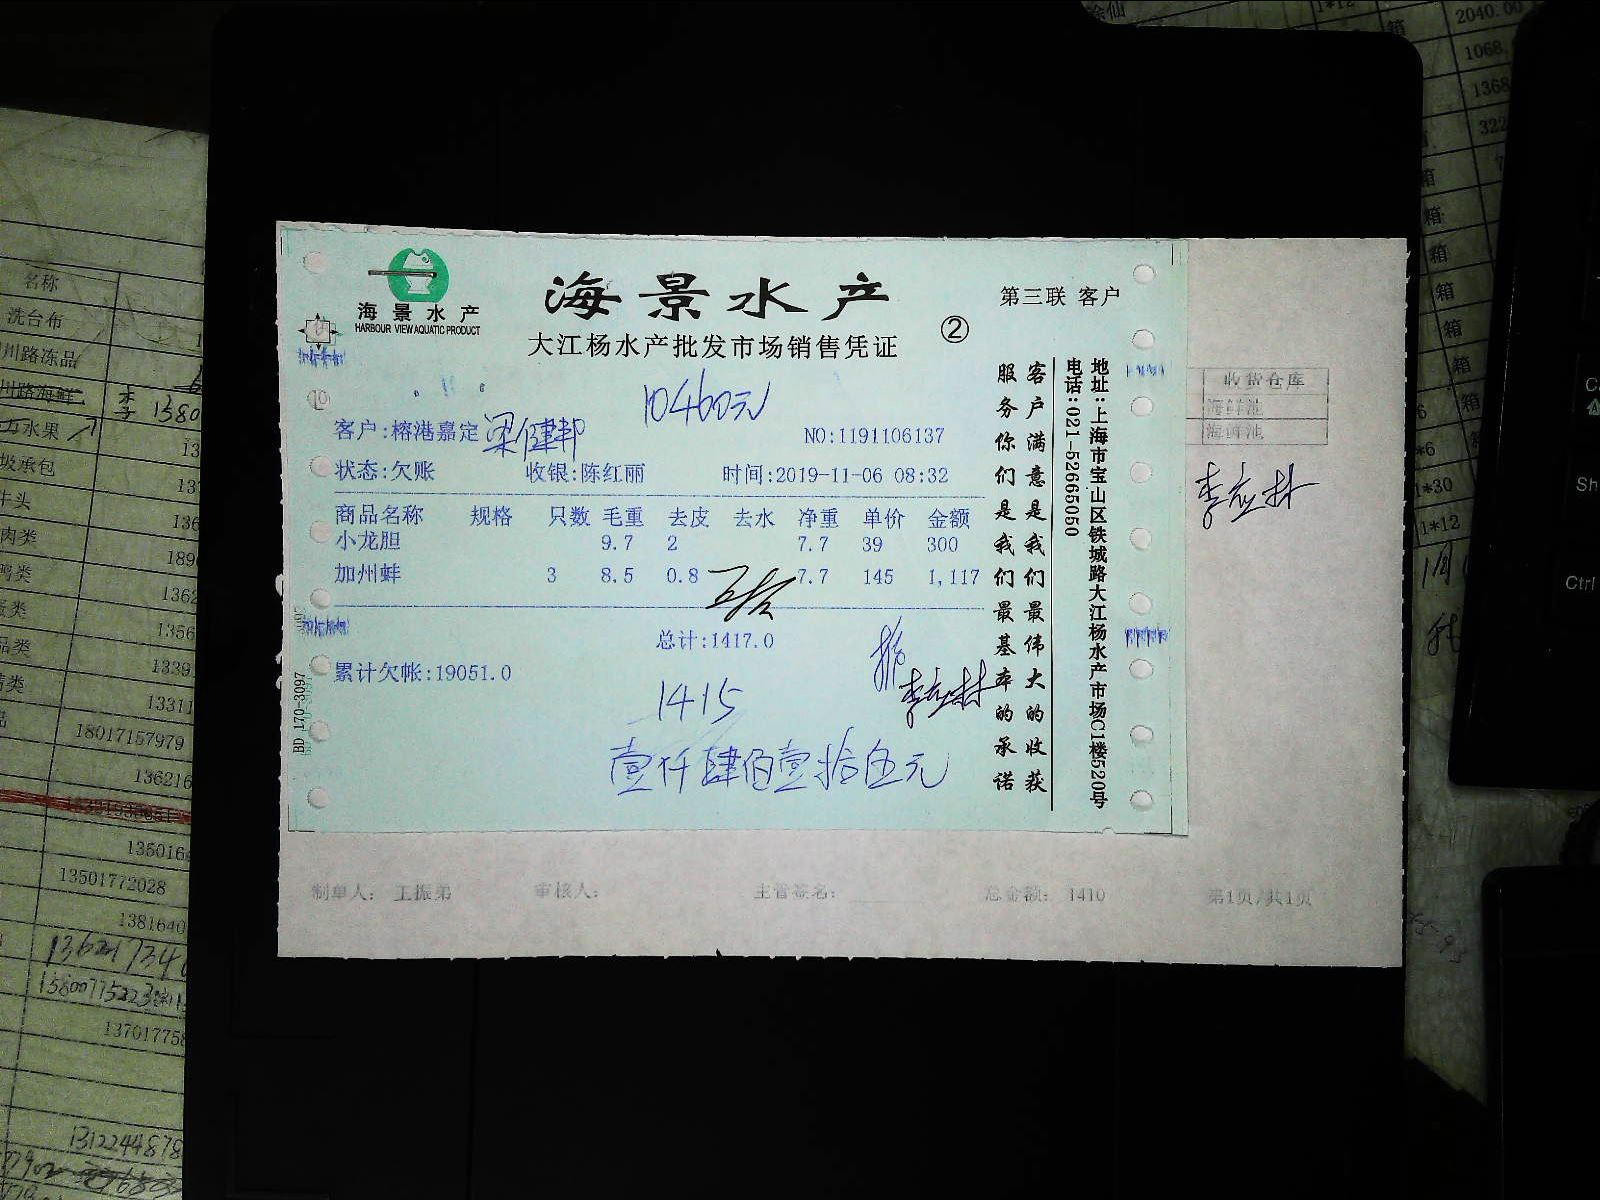 海景水产
HARBOUR VIEW AQUATIC PRODUCT
海景水产
大江杨水产批发市场销售凭证
②
第三联 客户
10460元
客户:榕港嘉定 梁健邦
NO:1191106137
状态:欠账 收银:陈红丽 时间:2019-11-06 08:32
商品名称 规格 只数 毛重 去皮 去水 净重 单价 金额
小龙胆 9.7 2 7.7 39 300
加州蚌 3 8.5 0.8 7.7 145 1,117
总计:1417.0
累计欠帐:19051.0
1415
壹仟肆佰壹拾伍元
李应林
客户满意是我们最伟大的收获
服务你们是我们最基本的承诺
地址:上海市宝山区铁城路大江杨水产市场C1楼520号
电话:021-52665050
BD 170-3097
收货仓库
海鲜池
海鲜池
李应林
制单人: 王振弟 审核人: 主管签名: 总金额: 1410 第1页/共1页
名称
洗台布
川路冻品
川路海鲜
李 1380
水果
坂承包
牛头
肉类
鸭类
18017157979
136216
135016
13501772028
1381640
137017758
1312244878
2040.00
1068.
1368
322
箱
箱
箱
箱
箱
箱
箱
*6
1*30
1*12
Ctrl